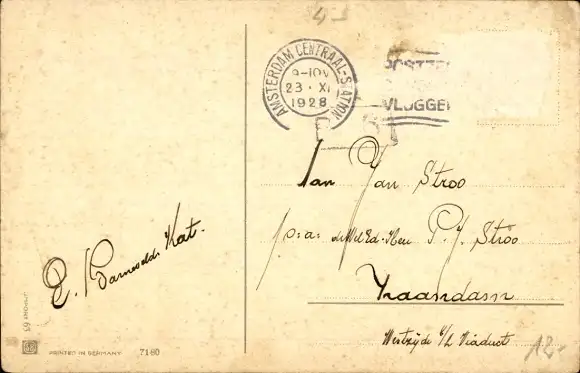 4-
AMSTERDAM CENTRAAL-STATION
9-10V
23·XI
1928
VLUGGE
Jan Jan Stroo
p:a: d. Wel Ed. Heer P. J. Stroo
Zaandam
Westzijde t/h Viaduct
12-
E. Barneveld-Kat.
PRINTED IN GERMANY 7160